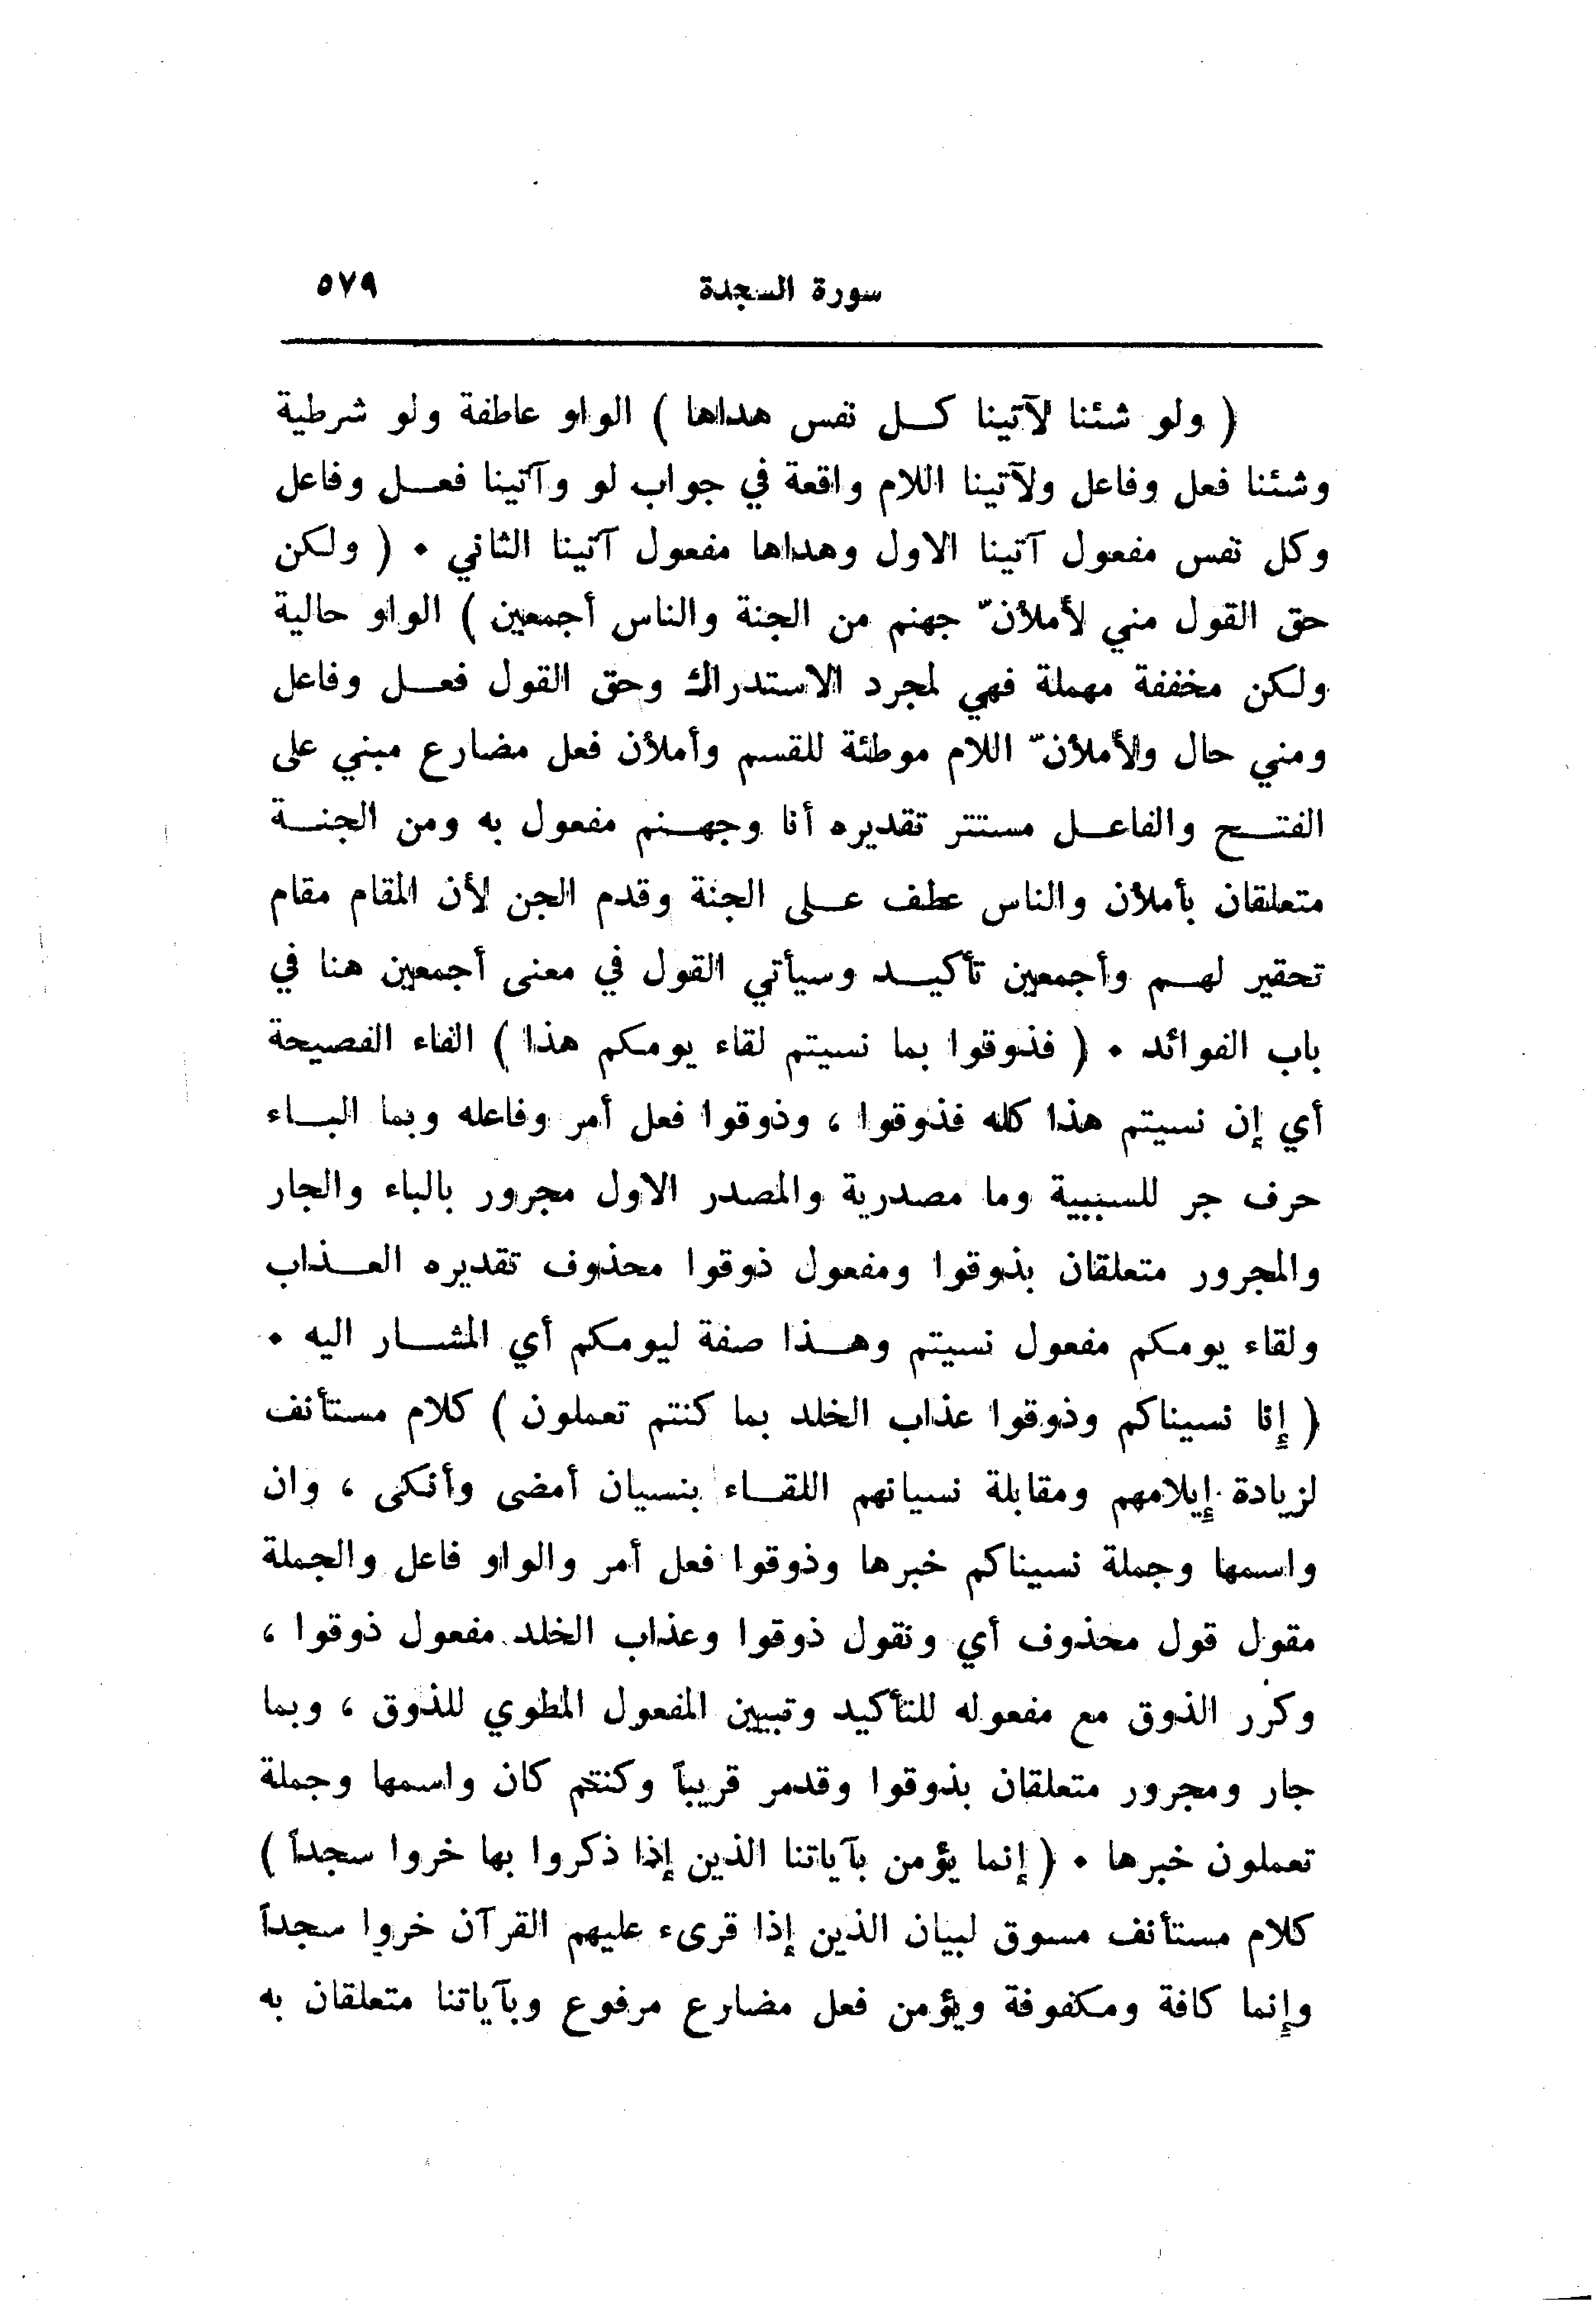 سورة السجدة ٥٧٩
( ولو شئنا لآتينا كل نفس هداها ) الواو عاطفة ولو شرطية
وشئنا فعل وفاعل ولآتينا اللام واقعة في جواب لو وآتينا فعل وفاعل
وكل نفس مفعول آتينا الاول وهداها مفعول آتينا الثاني . ( ولكن
حق القول مني لأملأنّ جهنم من الجنة والناس أجمعين ) الواو حالية
ولكن مخففة مهملة فهي لمجرد الاستدراك وحق القول فعل وفاعل
ومني حال ولأملأنّ اللام موطئة للقسم وأملأن فعل مضارع مبني على
الفتح والفاعل مستتر تقديره أنا وجهنم مفعول به ومن الجنة
متعلقان بأملأن والناس عطف على الجنة وقدم الجن لأن المقام مقام
تحقير لهم وأجمعين تأكيد وسيأتي القول في معنى أجمعين هنا في
باب الفوائد . ( فذوقوا بما نسيتم لقاء يومكم هذا ) الفاء الفصيحة
أي إن نسيتم هذا كله فذوقوا ، وذوقوا فعل أمر وفاعله وبما الباء
حرف جر للسببية وما مصدرية والمصدر الاول مجرور بالباء والجار
والمجرور متعلقان بذوقوا ومفعول ذوقوا محذوف تقديره العذاب
ولقاء يومكم مفعول نسيتم وهذا صفة ليومكم أي المشار اليه .
( إنا نسيناكم وذوقوا عذاب الخلد بما كنتم تعملون ) كلام مستأنف
لزيادة إيلامهم ومقابلة نسيانهم اللقاء بنسيان أمضى وأنكى ، وان
واسمها وجملة نسيناكم خبرها وذوقوا فعل أمر والواو فاعل والجملة
مقول قول محذوف أي ونقول ذوقوا وعذاب الخلد مفعول ذوقوا ،
وكرر الذوق مع مفعوله للتأكيد وتبيين المفعول المطوي للذوق ، وبما
جار ومجرور متعلقان بذوقوا وقدمر قريباً وكنتم كان واسمها وجملة
تعملون خبرها . ( إنما يؤمن بآياتنا الذين إذا ذكروا بها خروا سجداً )
كلام مستأنف مسوق لبيان الذين إذا قرىء عليهم القرآن خروا سجداً
وإنما كافة ومكفوفة ويؤمن فعل مضارع مرفوع وبآياتنا متعلقان به